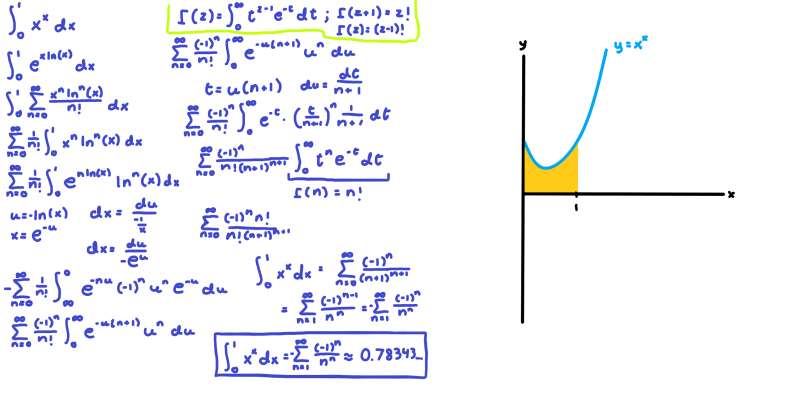 ∫₀¹ xˣ dx
∫₀¹ e^(xln(x)) dx
∫₀¹ Σ_(n=0)^∞ xⁿlnⁿ(x)/n! dx
Σ_(n=0)^∞ 1/n! ∫₀¹ xⁿ lnⁿ(x) dx
Σ_(n=0)^∞ 1/n! ∫₀¹ e^(nln(x)) lnⁿ(x) dx
u=-ln(x) dx = du/(-1/x)
x= e^(-u)
dx= du/(-e^u)
-Σ_(n=0)^∞ 1/n! ∫_∞^0 e^(-nu) (-1)ⁿ uⁿ e^(-u) du
Σ_(n=0)^∞ (-1)ⁿ/n! ∫₀^∞ e^(-u(n+1)) uⁿ du
Γ(z)=∫₀^∞ t^(z-1) e^(-t) dt ; Γ(z+1) = z!
Γ(z)= (z-1)!
Σ_(n=0)^∞ (-1)ⁿ/n! ∫₀^∞ e^(-u(n+1)) uⁿ du
t= u(n+1) du= dt/(n+1)
Σ_(n=0)^∞ (-1)ⁿ/n! ∫₀^∞ e^(-t) · (t/(n+1))ⁿ 1/(n+1) dt
Σ_(n=0)^∞ (-1)ⁿ/(n!(n+1)^(n+1)) ∫₀^∞ tⁿ e^(-t) dt
Γ(n) = n!
Σ_(n=0)^∞ (-1)ⁿ n!/(n!(n+1)^(n+1))
∫₀¹ xˣ dx = Σ_(n=0)^∞ (-1)ⁿ/(n+1)^(n+1)
= Σ_(n=1)^∞ (-1)^(n-1)/nⁿ = -Σ_(n=1)^∞ (-1)ⁿ/nⁿ
∫₀¹ xˣ dx = -Σ_(n=1)^∞ (-1)ⁿ/nⁿ ≈ 0.78343...
y
y=xˣ
x
1